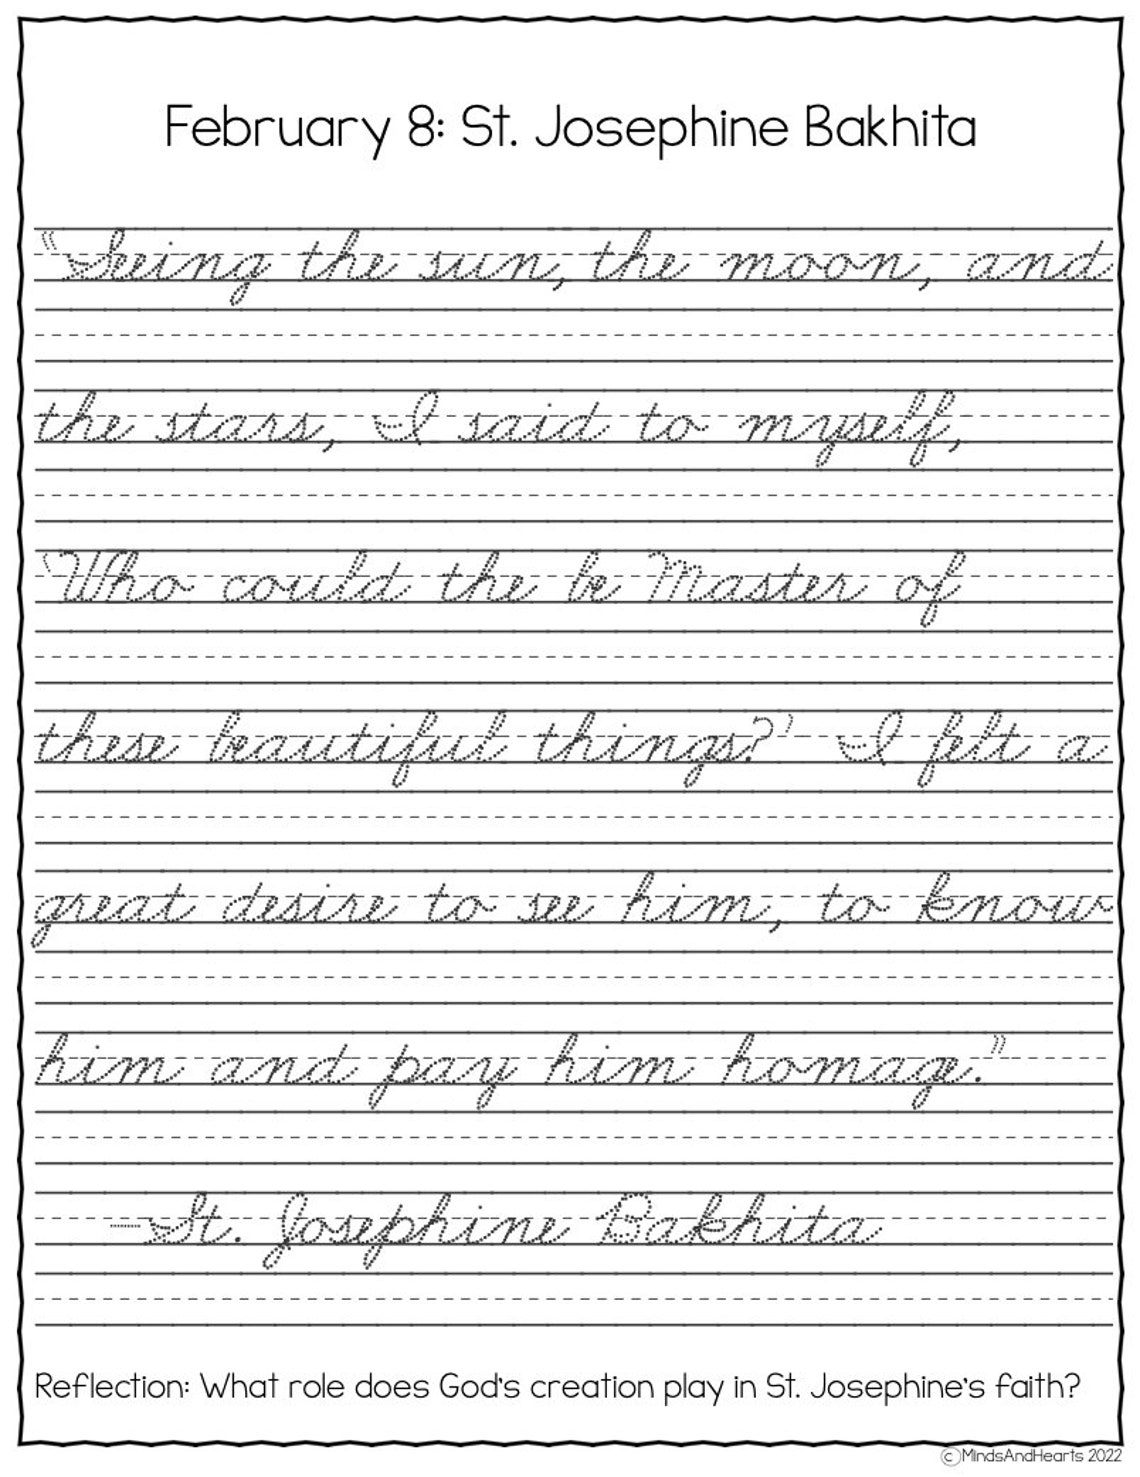 February 8: St. Josephine Bakhita
"Seeing the sun, the moon, and
the stars, I said to myself,
'Who could the be Master of
these beautiful things?' I felt a
great desire to see him, to know
him and pay him homage."
-St. Josephine Bakhita
Reflection: What role does God's creation play in St. Josephine's faith?
©MindsAndHearts 2022